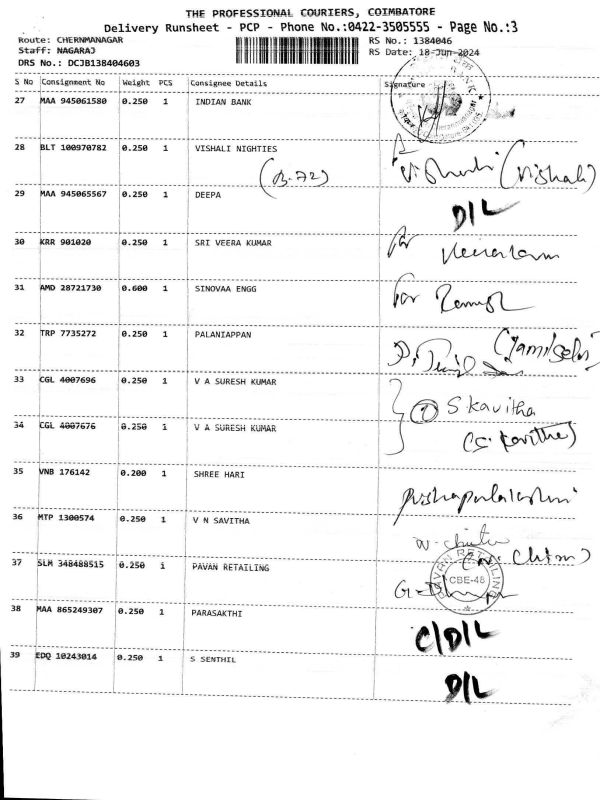 THE PROFESSIONAL COURIERS, COIMBATORE
Delivery Runsheet - PCP - Phone No.:0422-3505555 - Page No.:3
Route: CHERNMANAGAR RS No.: 1384046
Staff: NAGARAJ RS Date: 18-Jun-2024
DRS No.: DCJB138404603
S No Consignment No Weight PCS Consignee Details Signature
27 MAA 945061580 0.250 1 INDIAN BANK
28 BLT 100970782 0.250 1 VISHALI NIGHTIES (Vishali)
(B-72)
29 MAA 945065567 0.250 1 DEEPA D/L
30 KRR 901020 0.250 1 SRI VEERA KUMAR for
31 AMD 28721730 0.600 1 SINOVAA ENGG for
32 TRP 7735272 0.250 1 PALANIAPPAN (Tamilselvi)
33 CGL 4007696 0.250 1 V A SURESH KUMAR S Kavitha
34 CGL 4007676 0.250 1 V A SURESH KUMAR (S. Kavitha)
35 VNB 176142 0.200 1 SHREE HARI
36 MTP 1300574 0.250 1 V N SAVITHA
37 SLM 348488515 0.250 1 PAVAN RETAILING PAVAN RETAILING CBE-48
38 MAA 865249307 0.250 1 PARASAKTHI C/D/L
39 EDQ 10243014 0.250 1 S SENTHIL D/L